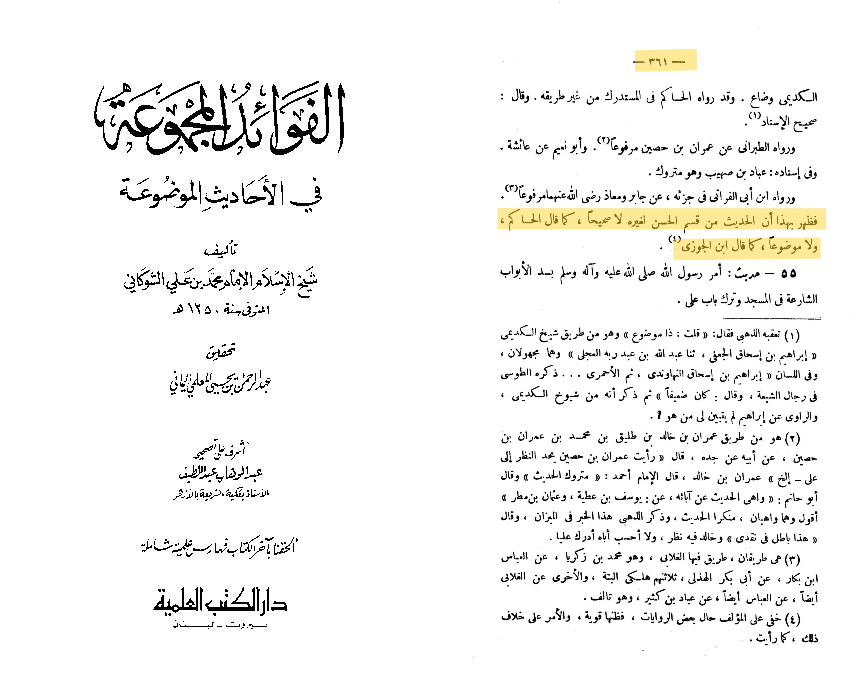 الفوائد المجموعة
في الأحاديث الموضوعة
تأليف
شيخ الإسلام الإمام محمد بن علي الشوكاني
المتوفى سنة ١٢٥٠ هـ
تحقيق
عبد الرحمن بن يحيى المعلمي اليماني
أشرف على تصحيحه
عبد الوهاب عبد اللطيف
الأستاذ بكلية الشريعة بالأزهر
ألحقنا بآخر الكتاب فهارس علمية شاملة
دار الكتب العلمية
بيروت - لبنان
— ٣٦١ —
الكديمى وضاع . وقد رواه الحاكم فى المستدرك من غير طريقه . وقال :
صحيح الإسناد(١).
ورواه الطبرانى عن عمران بن حصين مرفوعاً(٢). وأبو نعيم عن عائشة .
وفى إسناده : عباد بن صهيب وهو متروك .
ورواه ابن أبى الفراتى فى جزئه ، عن جابر ومعاذ رضى الله عنهما مرفوعاً(٣).
فظهر بهذا أن الحديث من قسم الحسن لغيره لا صحيحاً ، كما قال الحاكم ،
ولا موضوعاً ، كما قال ابن الجوزى(٤) .
٥٥ – حديث : أمر رسول الله صلى الله عليه وآله وسلم بسد الأبواب
الشارعة فى المسجد وترك باب على .
(١) تعقبه الذهبى فقال: « قلت : ذا موضوع » وهو من طريق شيخ الكديمى
« إبراهيم بن إسحاق الجعفى ، ثنا عبد الله بن عبد ربه العجلى » وهما مجهولان ،
وفى اللسان « إبراهيم بن إسحاق النهاوندى ، ثم الأحمرى . . . ذكره الطوسى
فى رجال الشيعة ، وقال : كان ضعيفاً » ثم ذكر أنه من شيوخ الكديمى ،
والراوى عن إبراهيم لم يتبين لى من هو ؟ .
(٢) هو من طريق عمران بن خالد بن طليق بن محمد بن عمران بن
حصين ، عن أبيه عن جده ، قال « رأيت عمران بن حصين يحد النظر إلى
على – إلخ » عمران بن خالد ، قال الإمام أحمد : « متروك الحديث » وقال
أبو حاتم : « واهى الحديث عن آبائه ، عن : يوسف بن عطية ، وعثمان بن مطر »
أقول وهما واهيان ، منكرا الحديث ، وذكر الذهبى هذا الخبر فى الميزان ، وقال
« هذا باطل فى نقدى » وخالد فيه نظر ، ولا أحسب أباه أدرك عليا .
(٣) هى طريقان ، طريق فيها الغلابى ، وهو محمد بن زكريا ، عن العباس
ابن بكار ، عن أبى بكر الهذلى ، ثلاثتهم هلكى البتة ، والأخرى عن الغلابى
أيضاً ، عن العباس أيضاً ، عن عباد بن كثير ، وهو تالف .
(٤) خفى على المؤلف حال بعض الروايات ، فظنها قوية ، والأمر على خلاف
ذلك ، كما رأيت .